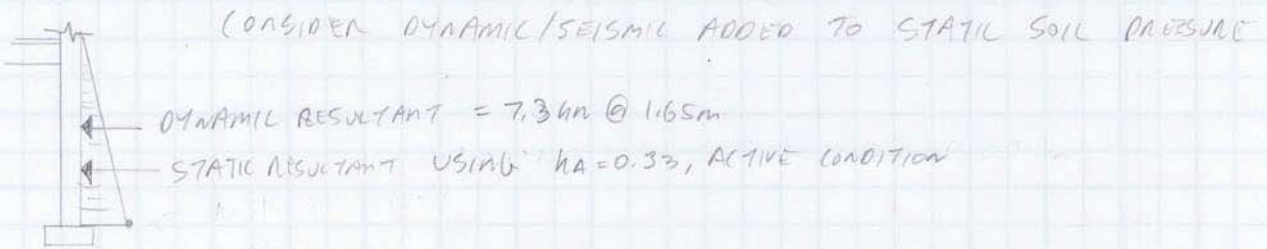 CONSIDER DYNAMIC/SEISMIC ADDED TO STATIC SOIL PRESSURE
DYNAMIC RESULTANT = 7.3 kN @ 1.65m
STATIC RESULTANT USING kA = 0.33, ACTIVE CONDITION